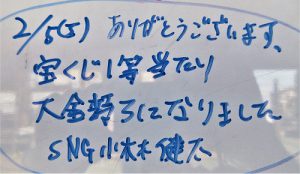 2/5(5) ありがとうございます、
宝くじ1等当たり
大金持ちになりました
SNG小林健太